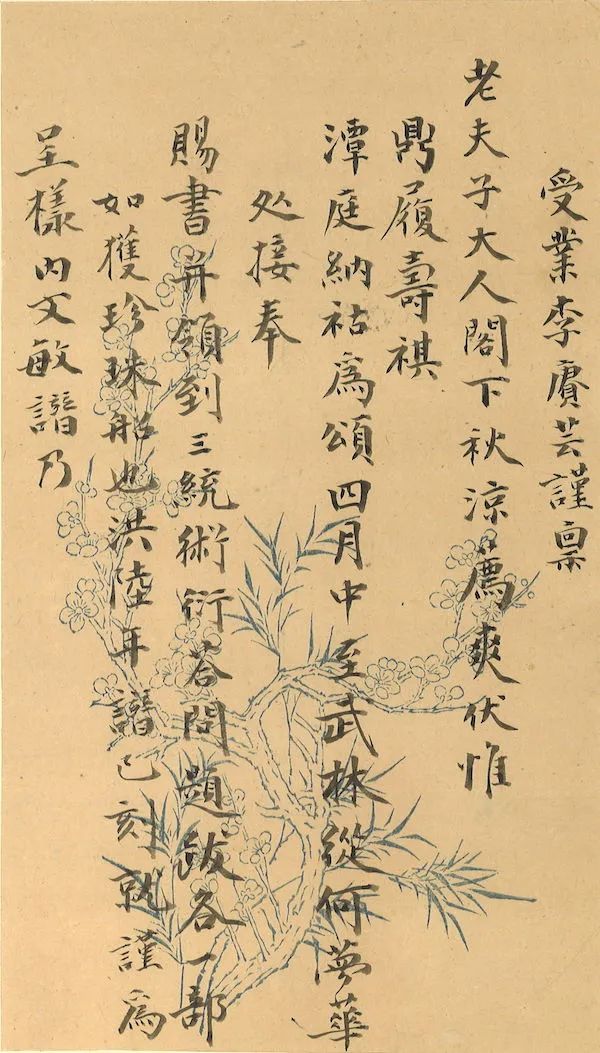 受業李賡芸謹禀
老夫子大人閣下秋涼薦爽伏惟
鼎履壽祺
潭庭納祜為頌四月中至武林從何夢華
处接奉
賜書并領到三統術衍荅問題跋各一部
如獲珍珠船也洪陸年譜已刻就謹為
呈樣内文敏譜乃